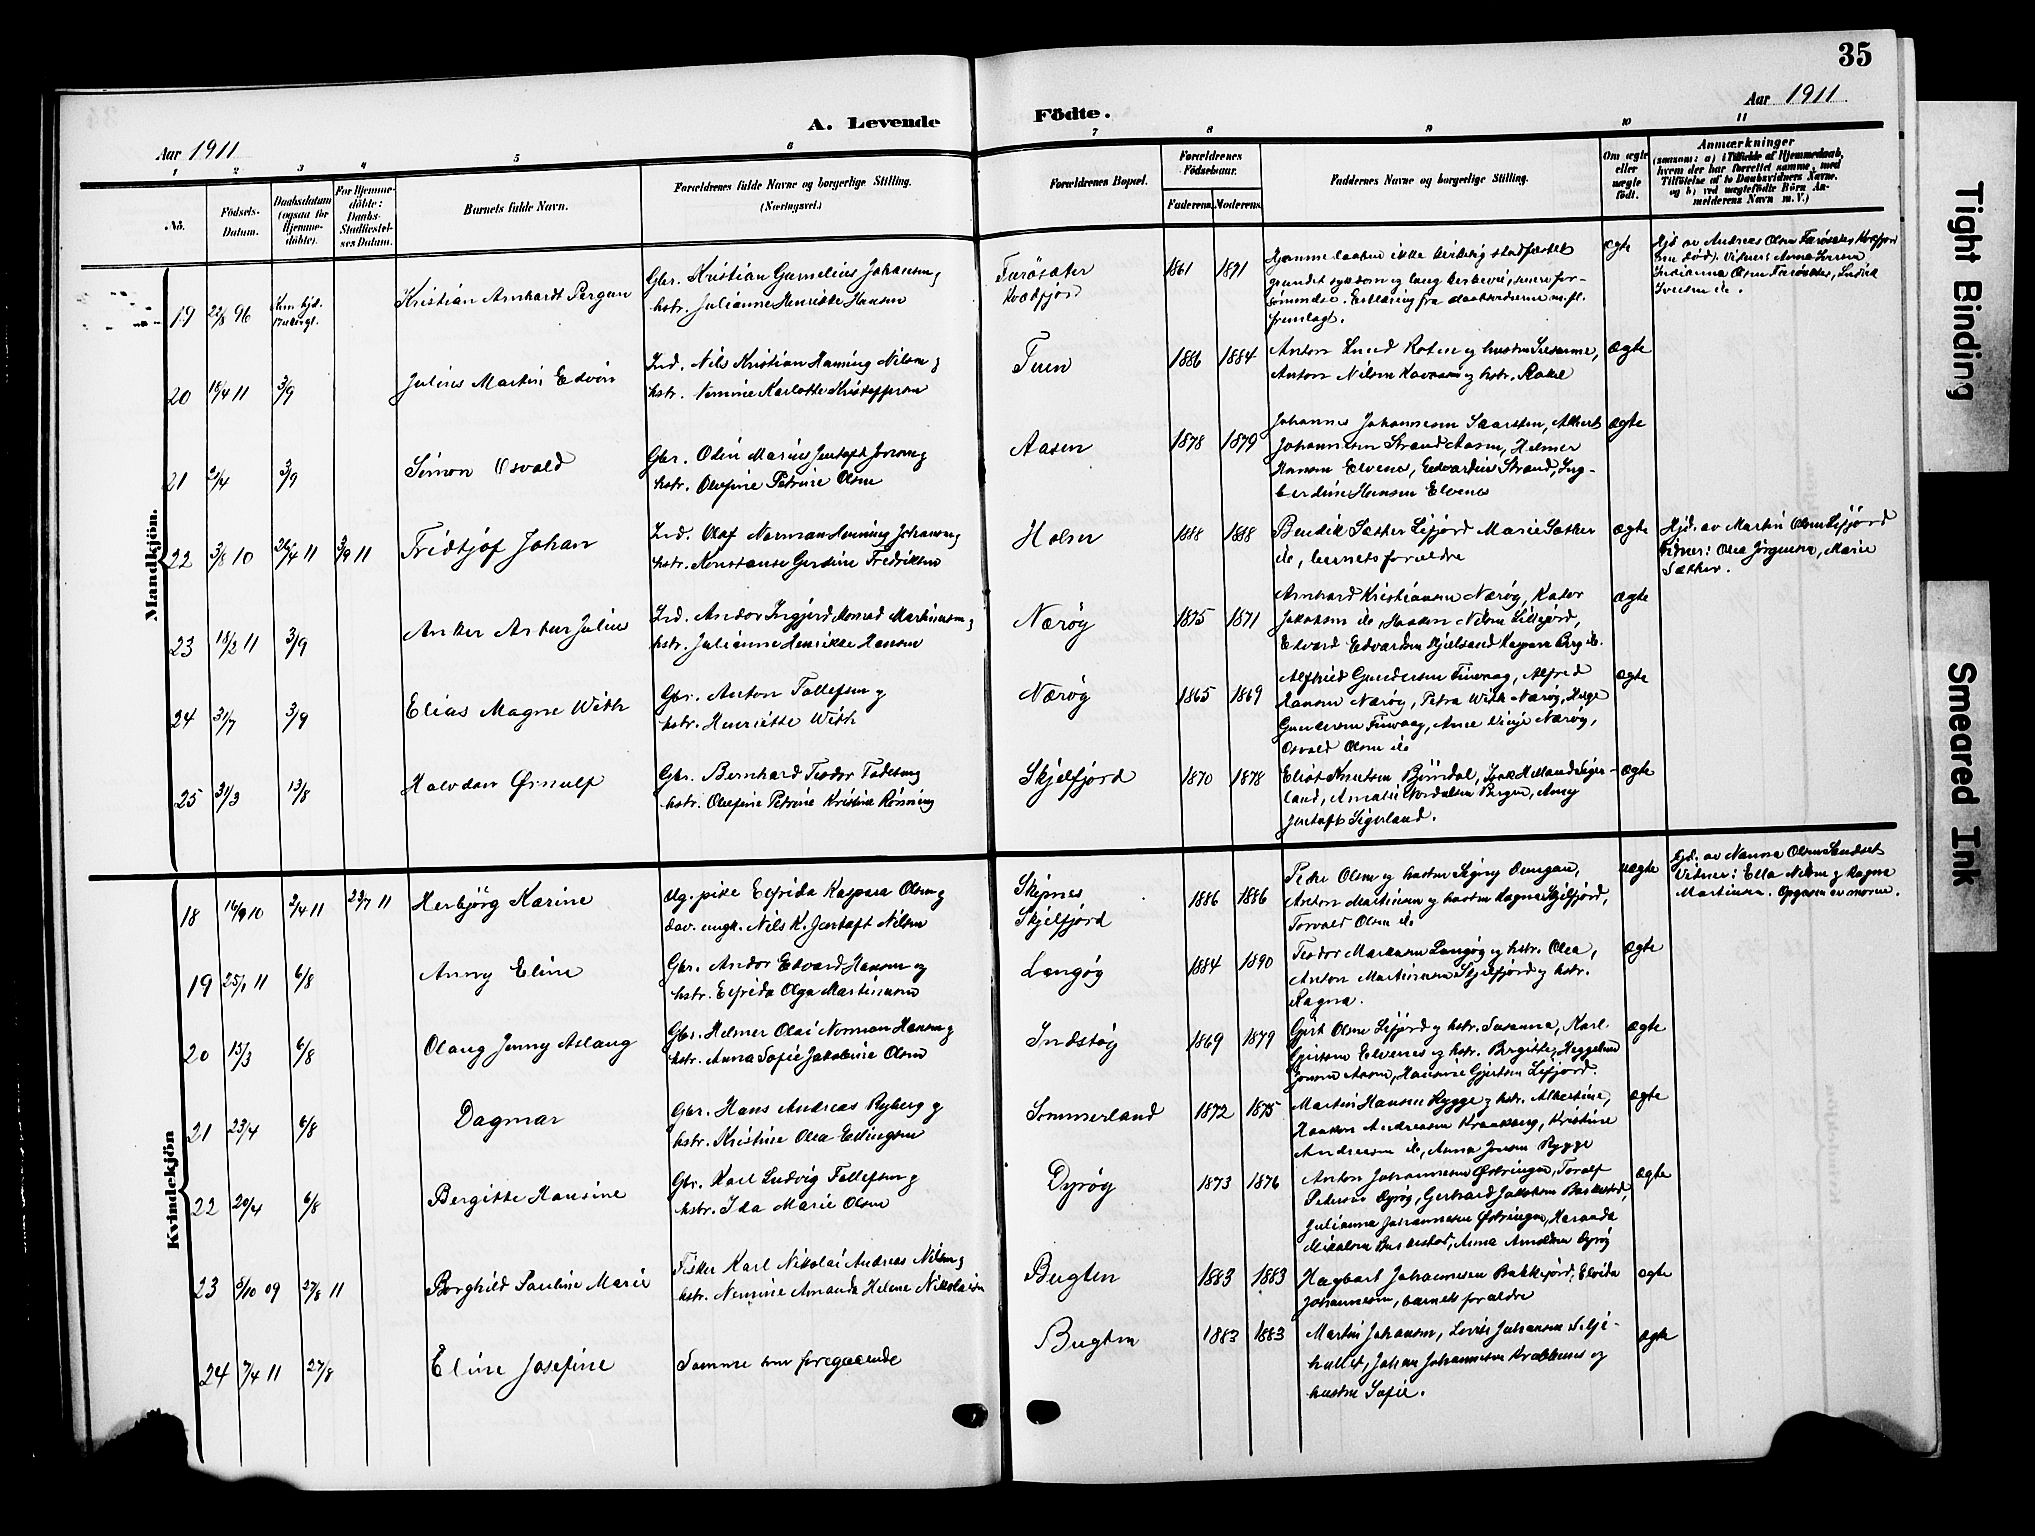 35
Aar 1911
A. Levende
Födte.
Aar 1911
1 2 3 4 5 6 7 8 9 10 11
No.
Födsels-
Datum.
Daabsdatum
(ogsaa for
Hjemme-
döbte).
For Hjemme-
döbte:
Daabs-
Stadfæstel-
ses Datum.
Barnets fulde Navn.
Forældrenes fulde Navne og borgerlige Stilling.
(Næringsvei.)
Forældrenes Bopæl.
Forældrenes
Födselsaar.
Faderens.
Moderens.
Faddernes Navne og borgerlige Stilling.
Om ægte
eller
uægte
födt.
Anmærkninger
(saasom: a) i Tilfælde af Hjemmedaab,
hvem der har forrettet samme, med
Tilföielse af to Daabsvidners Navne,
og b) ved uægtefödte Börn An-
melderens Navn m. V.)
Mandkjön.
19 22/8 96
Kristian Arnhardt Pergun
Gbr. Kristian Cornelius Johansen og
hstr. Julianne Henrikke Hansen
Kvæfjord
1861
ægte
Hjemmedaaben ikke kirkelig stadfæstet
grundet sygdom og lang kirkevei, senere for-
sömmelse. Erklæring fra daabsvidnerne m. fl.
fremlagt.
20 18/4 11 3/9
Julius Martin Edvin
Ind. Nils Kristian Henning Nilsen og
hstr. Nemine Karlotte Kristoffersen
Tuen
1886 1884
Anton Nilsen og hstr. Rakel
ægte
21 2/4 3/9
Simon Osvald
Gbr. Odin Marius Jentoft Jensen og
hstr. Olufine Petrine Olsen
Aasen
1878 1879
Johannes Johannesen Saarsten, Albert
Johannesen Strand Aasen, Helmer
Hansen Elvenes, Edvardin Strand, Ing-
berdine Hansen Elvenes
ægte
22 3/8 10 26/4 11 3/9 11
Fridtjof Johan
Ind. Olaf Norman Henning Johansen og
hstr. Konstanse Gerdine Fredriksen
Holm
1888 1888
Bendik Sæther Lifjord Marie Sæther
ds, barnets forældre
ægte
Hjd. av Martin Olsen Lifjord
Vidner: Olea Jörgensen, Marie
Sæther.
23 18/2 11 3/9
Anker Artur Julius
Ind. Andor Ingjerd Konrad Martinussen og
hstr. Julianne Henrikke Hansen
Nærög
1875 1871
Arnhard Kristiansen Nærög, Kator
Jakobsen ds, Haakon Nilsen Lillefjord,
Edvard Edvardsen Skjelsand Kaspara Berg ds.
ægte
24 31/7 3/9
Elias Magne With
Gbr. Anton Tollefsen og
hstr. Henriette With
Nærög
1865 1869
Alfhild Gundersen Finvaag, Alfred
Hansen Nærög, Petra With Nærög, Helge
Gundersen Finvaag, Anne Vinje Nærög,
Osvald Olsen ds
ægte
25 31/3 13/8
Halvdan Ørnulf
Gbr. Bernhard Teodor
hstr. Olufine Petrine Kristine Rönning
Skjelfjord
1870 1878
Eliot Knutsen Björndal, Isak Meland Siger-
land, Amalie Nordalsen Bergen, Anny
Jentoft Sigerland.
ægte
Kvindekjön
18 16/9 10 2/4 11 23/7 11
Herbjörg Karine
Ug. pike Elfrida Kaspara Olsen og
Uav. ungk. Nils K. Jentoft Nilsen
Skipnes
Skjelfjord
1886 1886
Peder Olsen og hustru Signy
Anton Martinsen og hustru Ragna Skjelfjord,
Torvald Olsen ds
uægte
Hjd. av Nanna Olsen Sandset
Vidner: Ella Nilsen og Ragna
Martinsen. Opgaven av moren.
19 25/1 11 6/8
Anny Eline
Gbr. Andor Edvard Hansen og
hstr. Elfrida Olga Martinsen
Langög
1884 1890
Teodor Markussen Langög og hstr. Olea,
Anton Martinsen Skjelfjord og hstr.
Ragna.
ægte
20 13/3 6/8
Olaug Jenny Aslaug
Gbr. Helmer Olai Norman Hansen og
hstr. Anna Sofie Jakobine Olsen
Indstög
1869 1879
Gjert Olsen Lifjord og hstr. Susanna, Karl
Gjertsen Elvenes og hstr. Birgitte, Heggelund
Jensen Aasen, Hansine Gjertsen Lifjord.
ægte
21 23/4 6/8
Dagmar
Gbr. Hans Andreas Ryberg og
hstr. Kristine Olea Edingsen
Sommerland
1872 1875
Martin Hansen Rygge og hstr. Albertine,
Haakon Andreassen Kraakberg, Kristine
Andreassen ds, Anna Jensen Rygge
ægte
22 29/4 6/8
Bergitte Hansine
Gbr. Karl Ludvig Tollefsen og
hstr. Ida Marie Olsen
Dyrög
1873 1876
Anton Johannesen Østringen, Toralf
Petersen Dyrög, Gerhard Jakobsen Buskestad,
Julianna Johannesen Østringen, Haranda
Mikalsen Buskestad, Anna Arnoldsen Dyrög
ægte
23 3/10 09 27/8 11
Borghild Pauline Marie
Fisker Karl Nikolai Andreas Nilsen og
hstr. Nemine Amanda Helene Nikolaisen
Bugten
1883 1883
Hagbart Johannesen Bakkejord, Elvida
Johannesen, barnets forældre
ægte
24 7/4 11 27/8
Eline Josefine
Samme som foregaaende
Bugten
1883 1883
Martin Johansen, Lovise Johansen Selje-
hullet, Johan Johannesen Krabbenes og
hustru Sofie.
ægte
Tight Binding
Smeared Ink